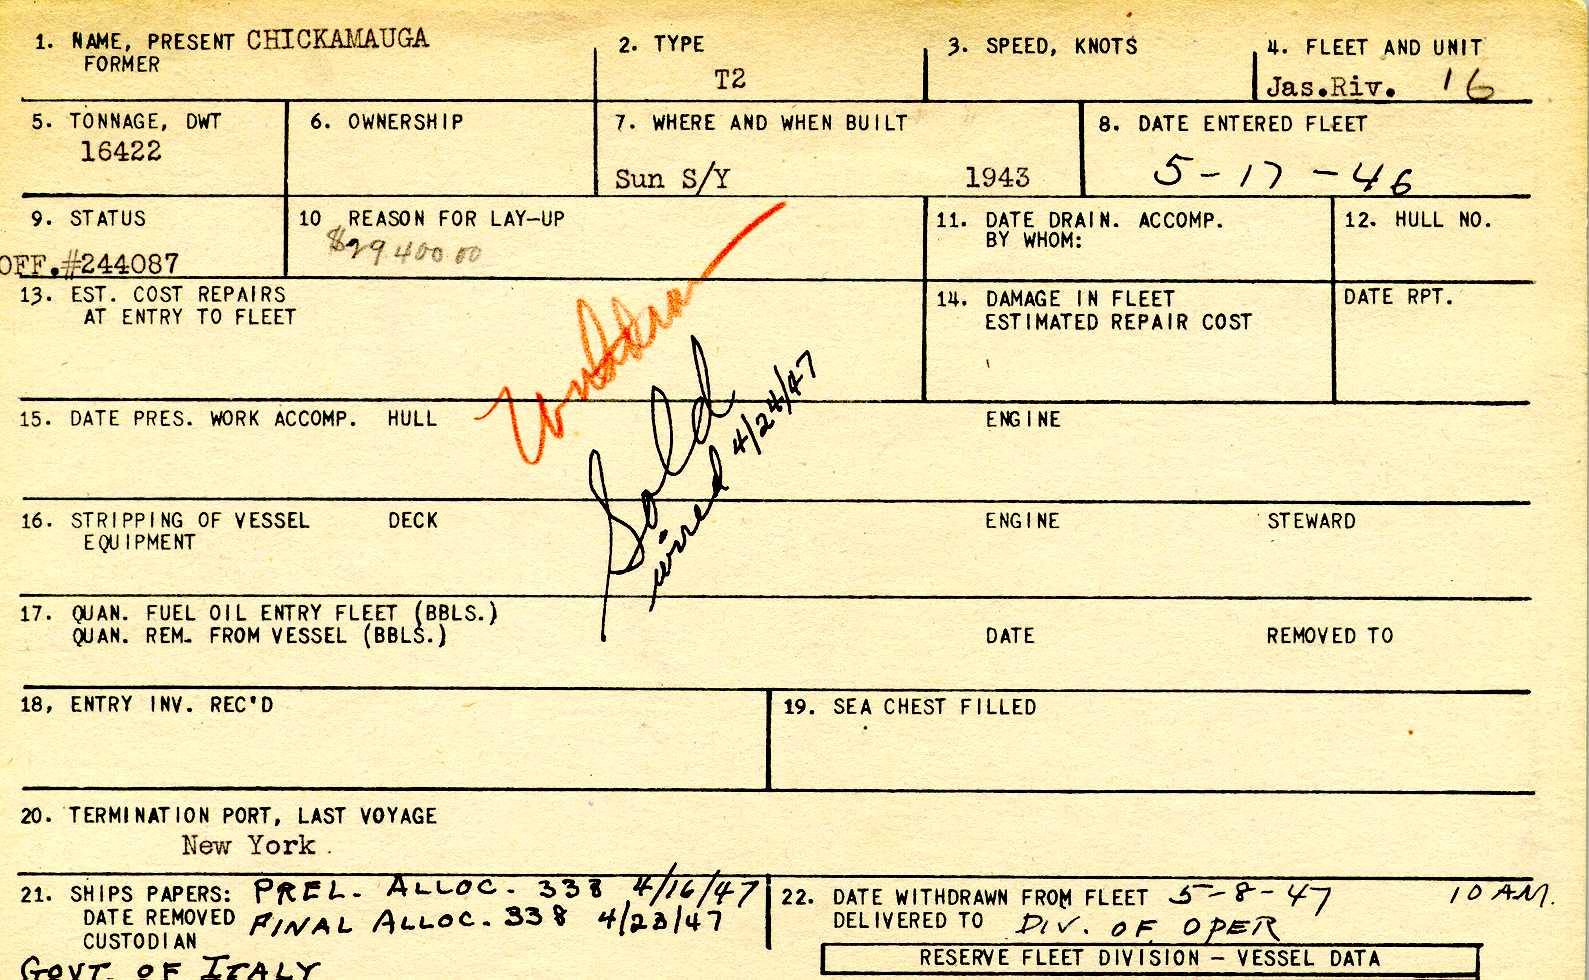 1. NAME, PRESENT CHICKAMAUGA
FORMER
2. TYPE
T2
3. SPEED, KNOTS
4. FLEET AND UNIT
Jas.Riv. 16
5. TONNAGE, DWT
16422
6. OWNERSHIP
7. WHERE AND WHEN BUILT
Sun S/Y 1943
8. DATE ENTERED FLEET
5-17-46
9. STATUS
OFF.#244087
10 REASON FOR LAY-UP
$29400.00
11. DATE DRAIN. ACCOMP.
BY WHOM:
12. HULL NO.
13. EST. COST REPAIRS
AT ENTRY TO FLEET
14. DAMAGE IN FLEET
ESTIMATED REPAIR COST
DATE RPT.
Withdrawn
Sold
wired 4/24/47
15. DATE PRES. WORK ACCOMP. HULL ENGINE
16. STRIPPING OF VESSEL DECK ENGINE STEWARD
EQUIPMENT
17. QUAN. FUEL OIL ENTRY FLEET (BBLS.)
QUAN. REM. FROM VESSEL (BBLS.) DATE REMOVED TO
18, ENTRY INV. REC'D
19. SEA CHEST FILLED
20. TERMINATION PORT, LAST VOYAGE
New York.
21. SHIPS PAPERS: PREL. ALLOC. 338 4/16/47
DATE REMOVED FINAL ALLOC. 338 4/23/47
CUSTODIAN
GOVT. OF ITALY
22. DATE WITHDRAWN FROM FLEET 5-8-47 10 AM.
DELIVERED TO DIV. OF OPER
RESERVE FLEET DIVISION - VESSEL DATA